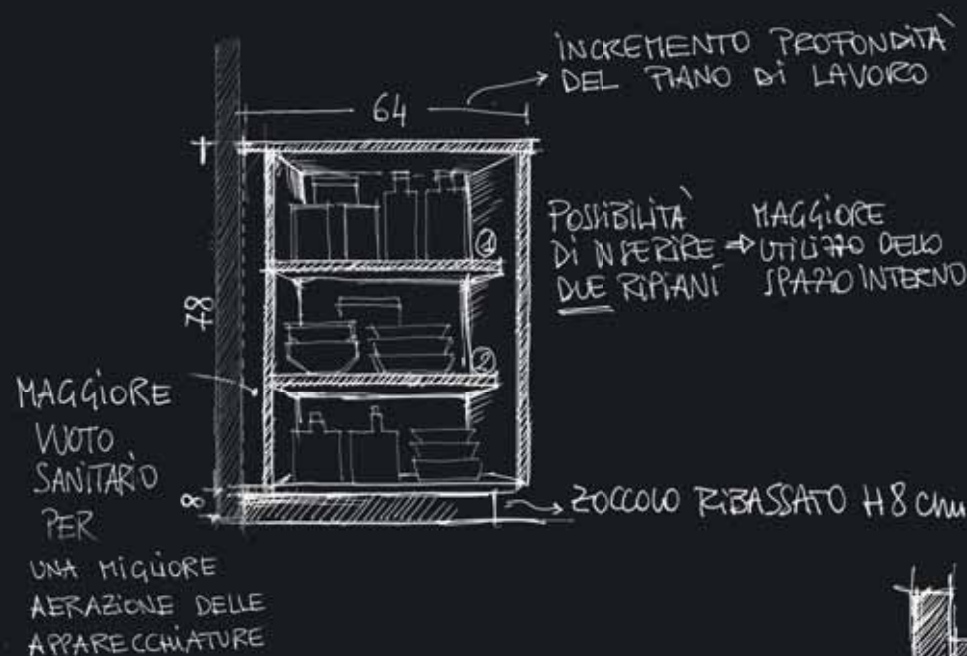 INCREMENTO PROFONDITÀ
DEL PIANO DI LAVORO
64
POSSIBILITÀ
DI INSERIRE
DUE RIPIANI
MAGGIORE
UTILIZZO DELLO
SPAZIO INTERNO
1
78
2
MAGGIORE
VUOTO
SANITARIO
PER
UNA MIGLIORE
AERAZIONE DELLE
APPARECCHIATURE
8
ZOCCOLO RIBASSATO H8 cm